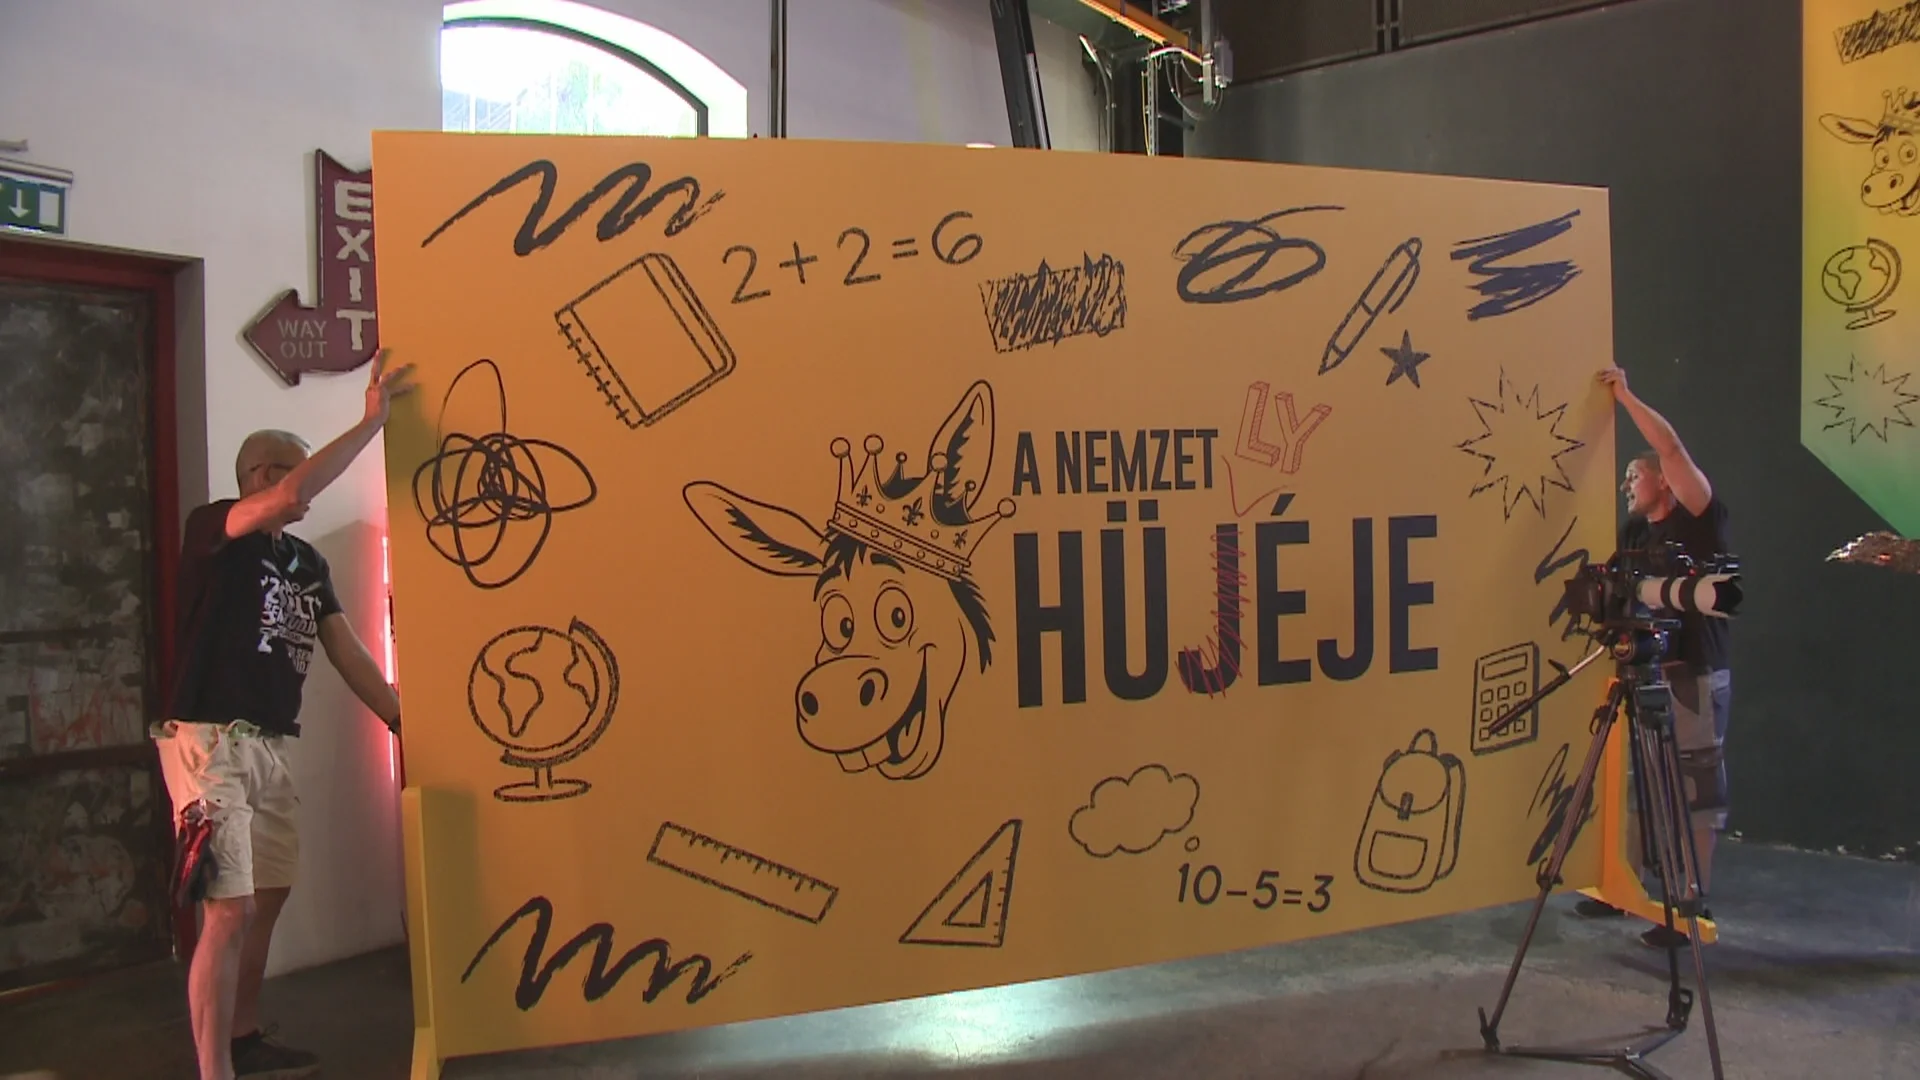 EXIT
WAY
OUT
2+2=6
A NEMZET
LY
HÜJÉJE
10-5=3